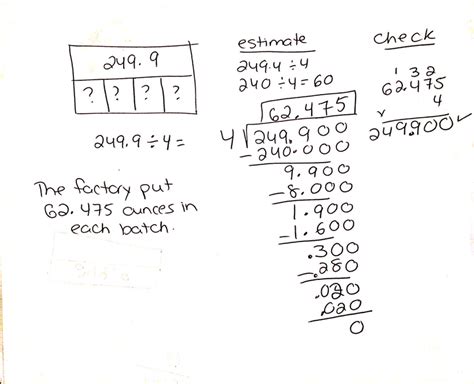 249.9
? ? ? ?
249.9 ÷ 4 =
The factory put
62.475 ounces in
each batch.
estimate
249.4 ÷ 4
240 ÷ 4 = 60
62.475
4 249.900
- 240.000
9.900
- 8.000
1.900
- 1.600
.300
- .280
.020
.020
0
check
1 3 2
62.475
x 4
249.900 ✓